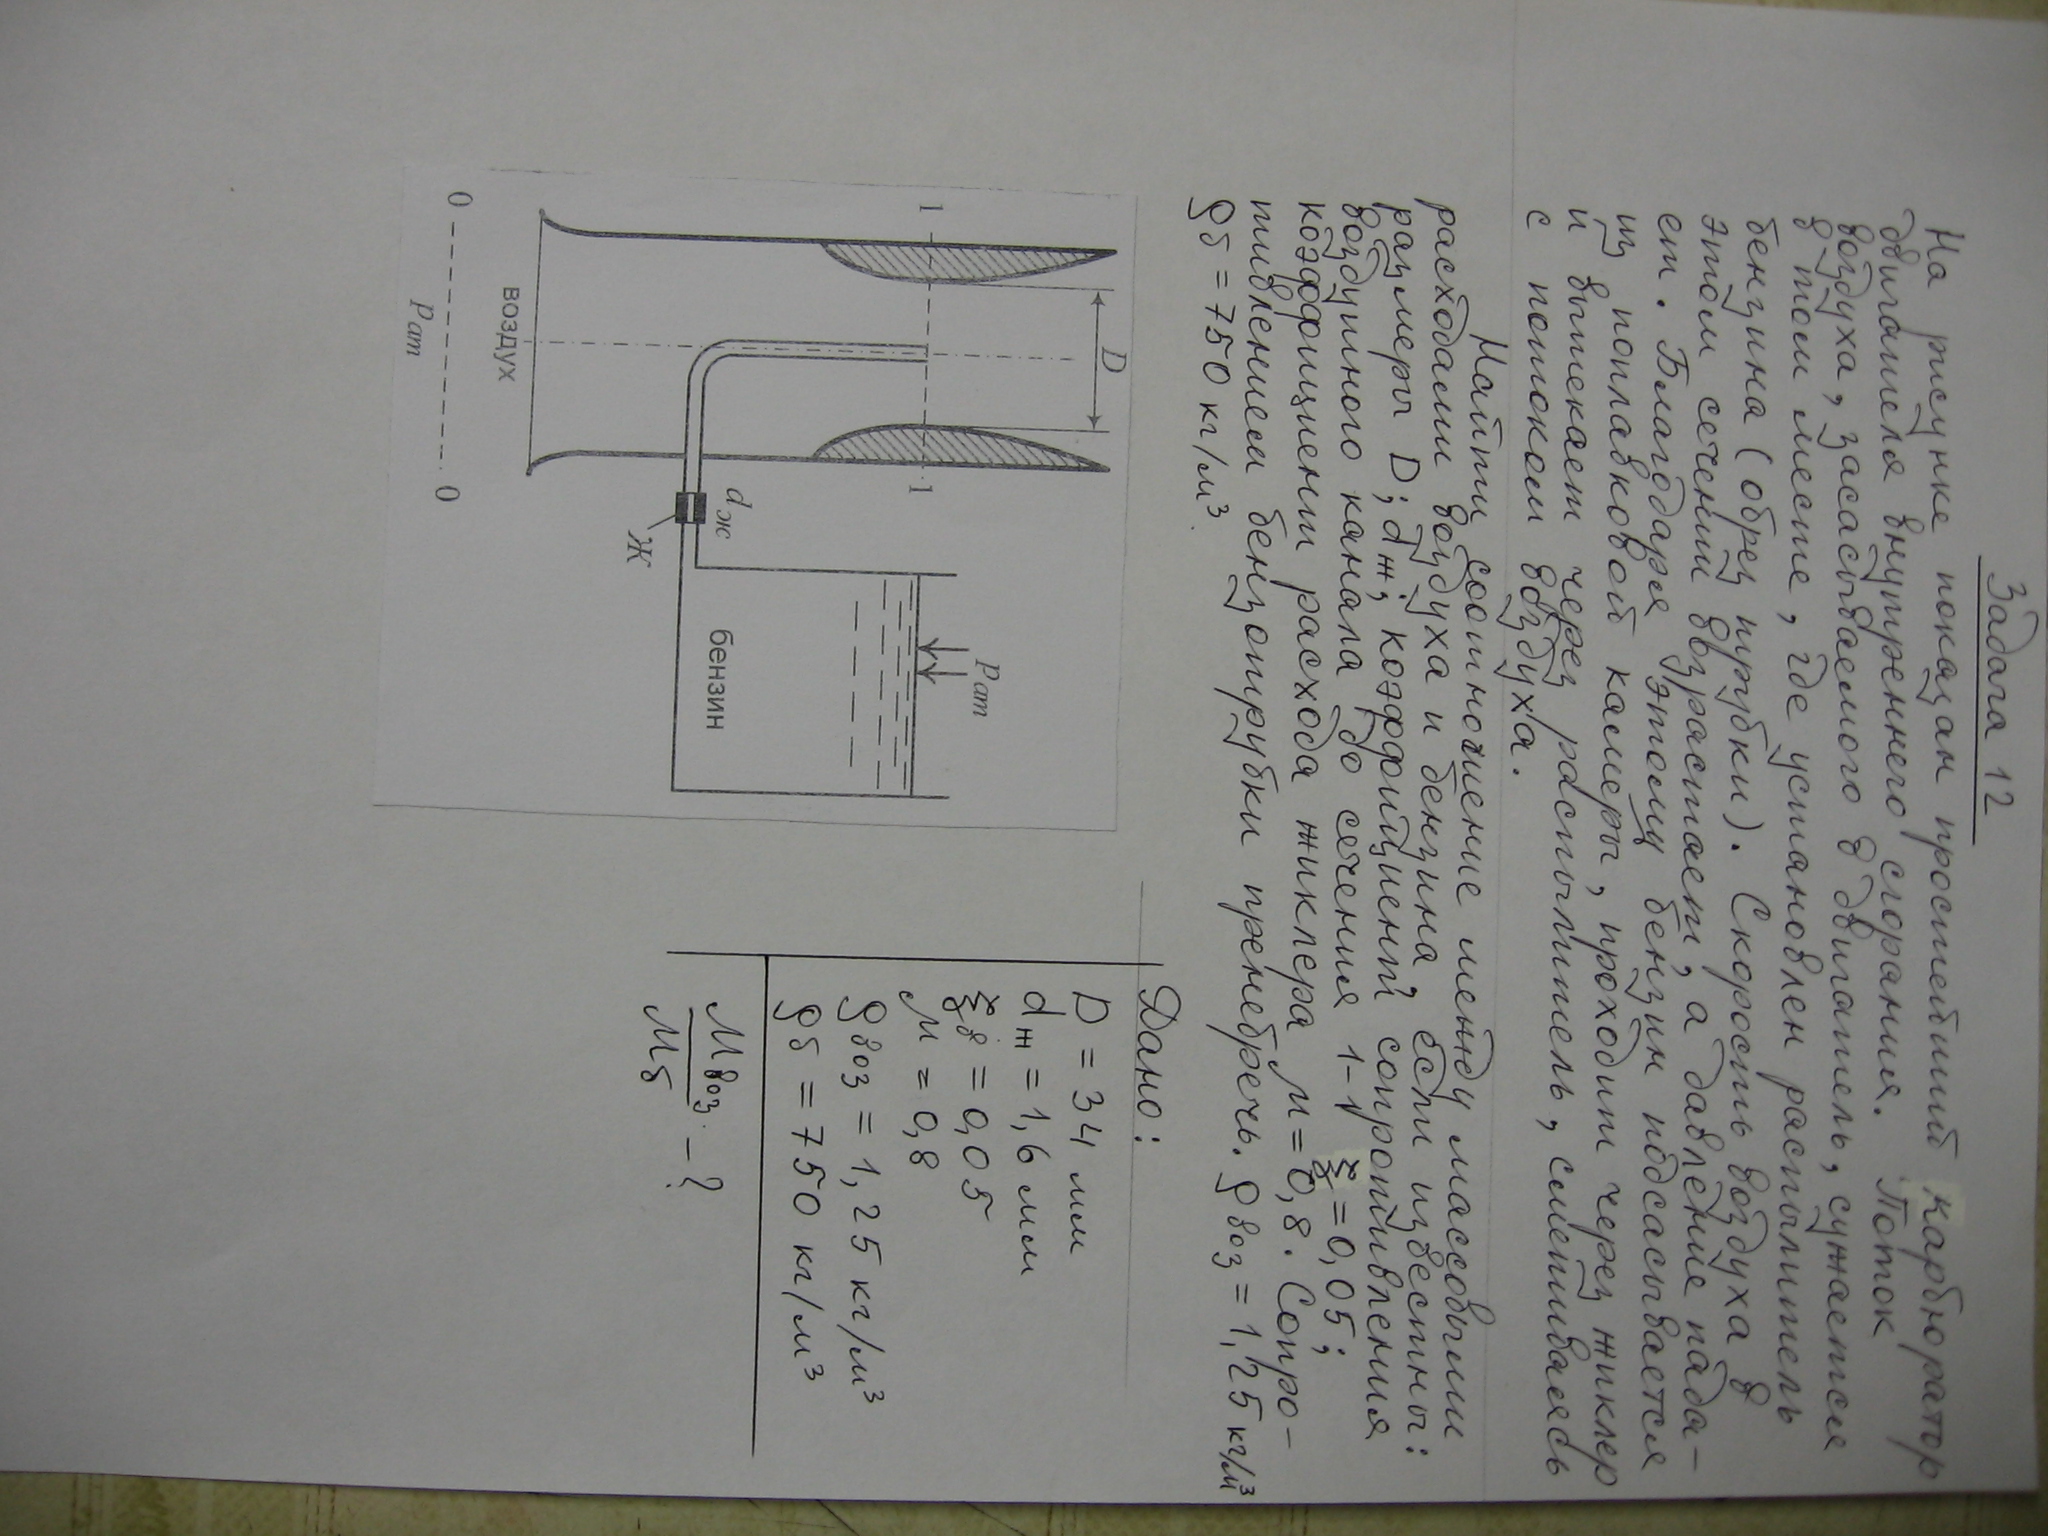 Задача 12
На рисунке показан простейший карбюратор
двигателя внутреннего сгорания. Поток
воздуха, засасываемого в двигатель, сужается
в том месте, где установлен распылитель
бензина (обрез трубки). Скорость воздуха в
этом сечении возрастает, а давление пада-
ет. Благодаря этому бензин подсасывается
из поплавковой камеры, проходит через жиклер
и вытекает через распылитель, смешиваясь
с потоком воздуха.
Найти соотношение между массовыми
расходами воздуха и бензина, если известны:
размеры D; dж; коэффициент сопротивления
воздушного канала до сечения 1-1 ξ = 0,05;
коэффициент расхода жиклера μ = 0,8. Сопро-
тивлением бензотрубки пренебречь. ρвоз = 1,25 кг/м³
ρб = 750 кг/м³.
D
1
1
Pат
dж
Ж
бензин
воздух
0
0
Pат
Дано:
D = 34 мм
dж = 1,6 мм
ξв = 0,05
μ = 0,8
ρвоз = 1,25 кг/м³
ρб = 750 кг/м³
Мвоз
Мб
- ?